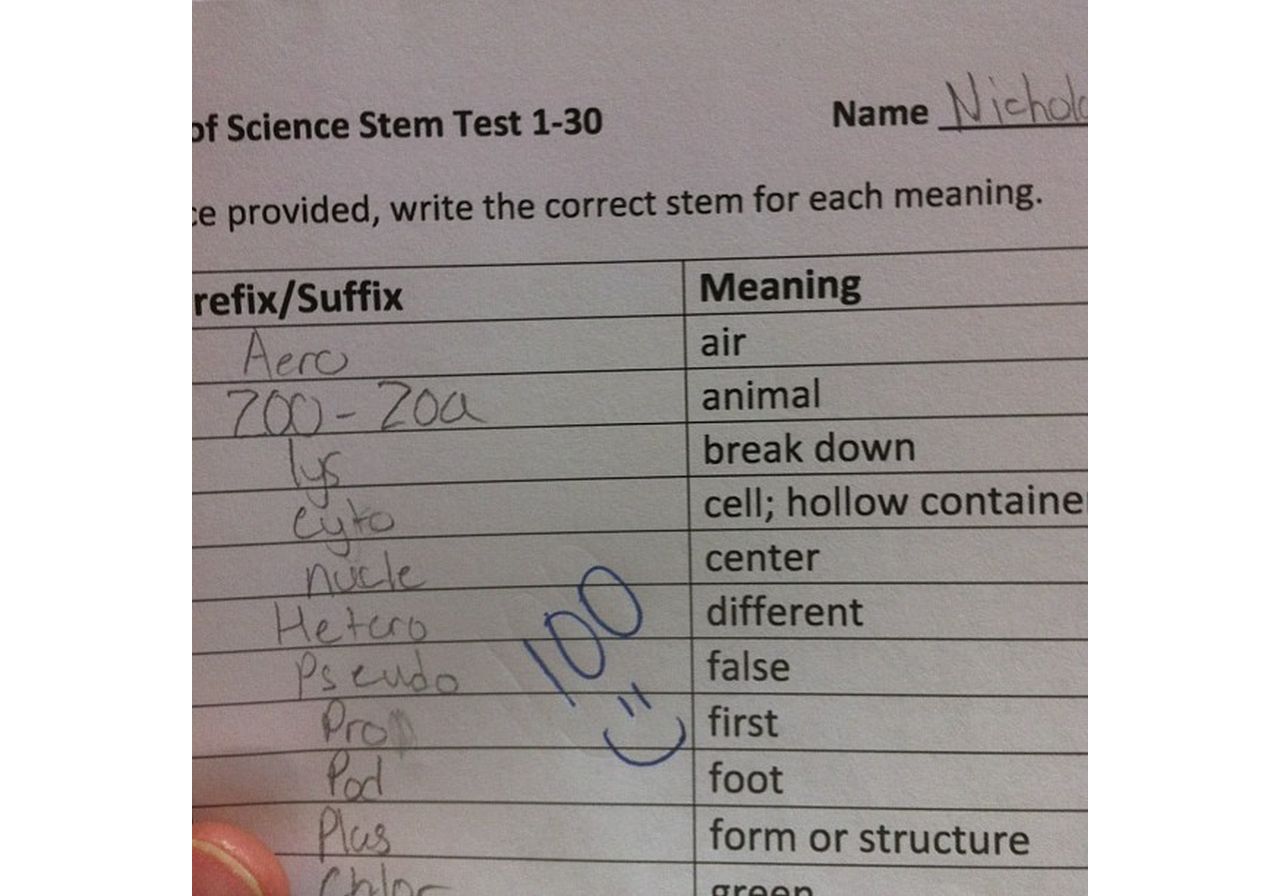 of Science Stem Test 1-30 Name Nichol
ce provided, write the correct stem for each meaning.
refix/Suffix Meaning
Aero air
zoo - zoa animal
lys break down
cyto cell; hollow containe
nucle center
Hetero different
Pseudo false
Pro first
Pod foot
Plas form or structure
Chlor green
100